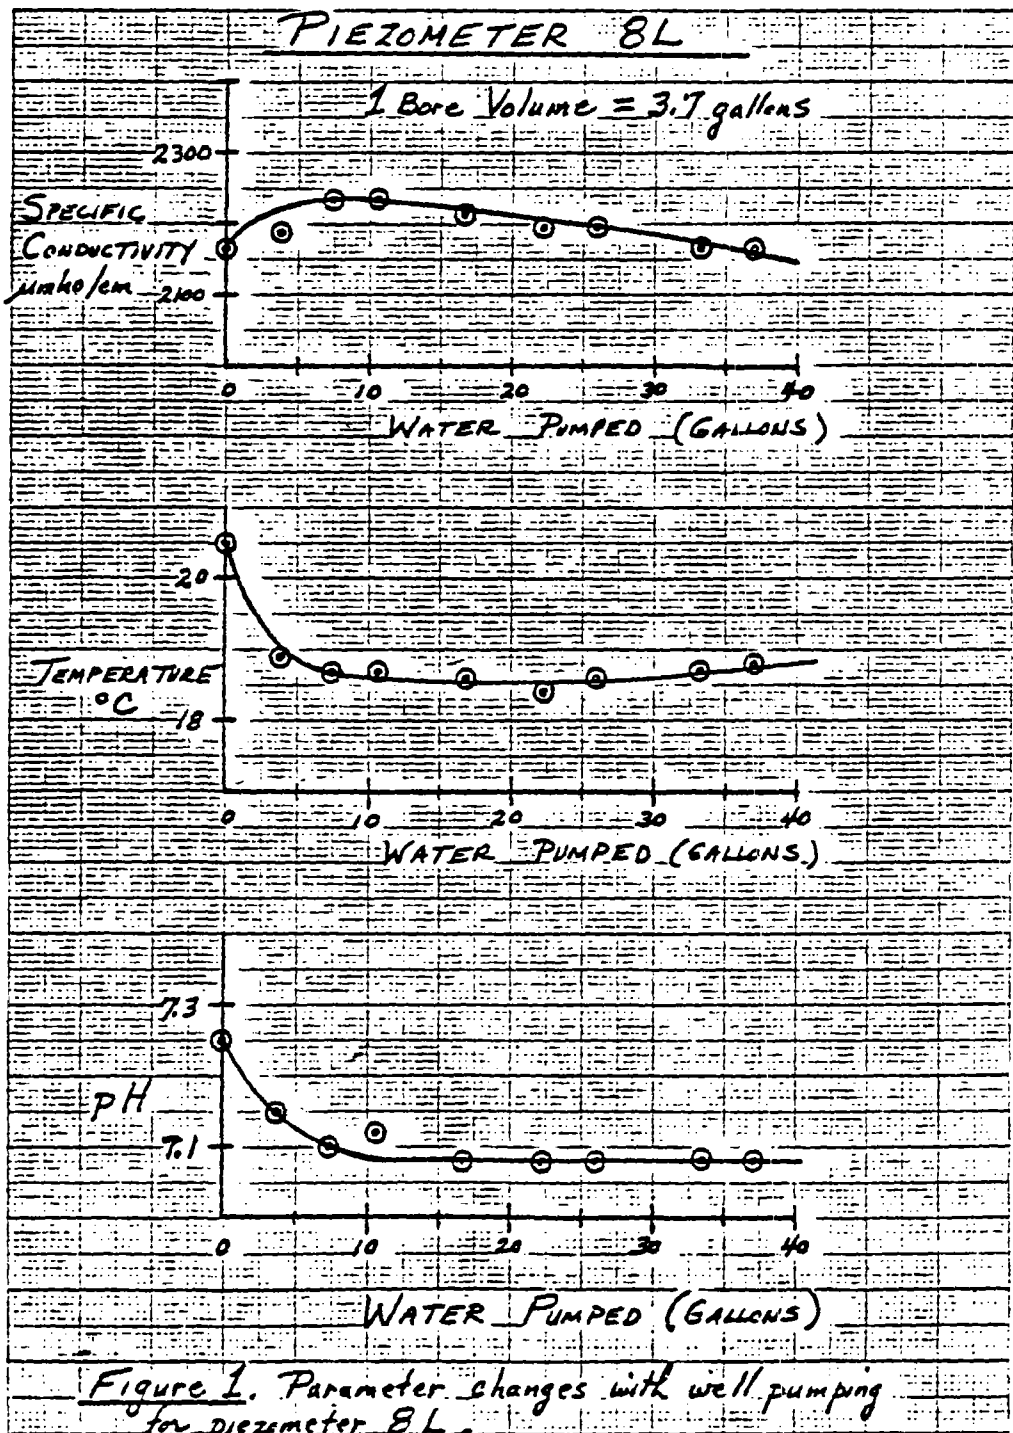 PIEZOMETER 8L
1 Bore Volume = 3.7 gallons
2300
SPECIFIC
CONDUCTIVITY
µmho/cm
2100
0 10 20 30 40
WATER PUMPED (GALLONS)
20
TEMPERATURE
°C
18
0 10 20 30 40
WATER PUMPED (GALLONS)
7.3
pH
7.1
0 10 20 30 40
WATER PUMPED (GALLONS)
Figure 1. Parameter changes with well pumping
for piezometer 8L.